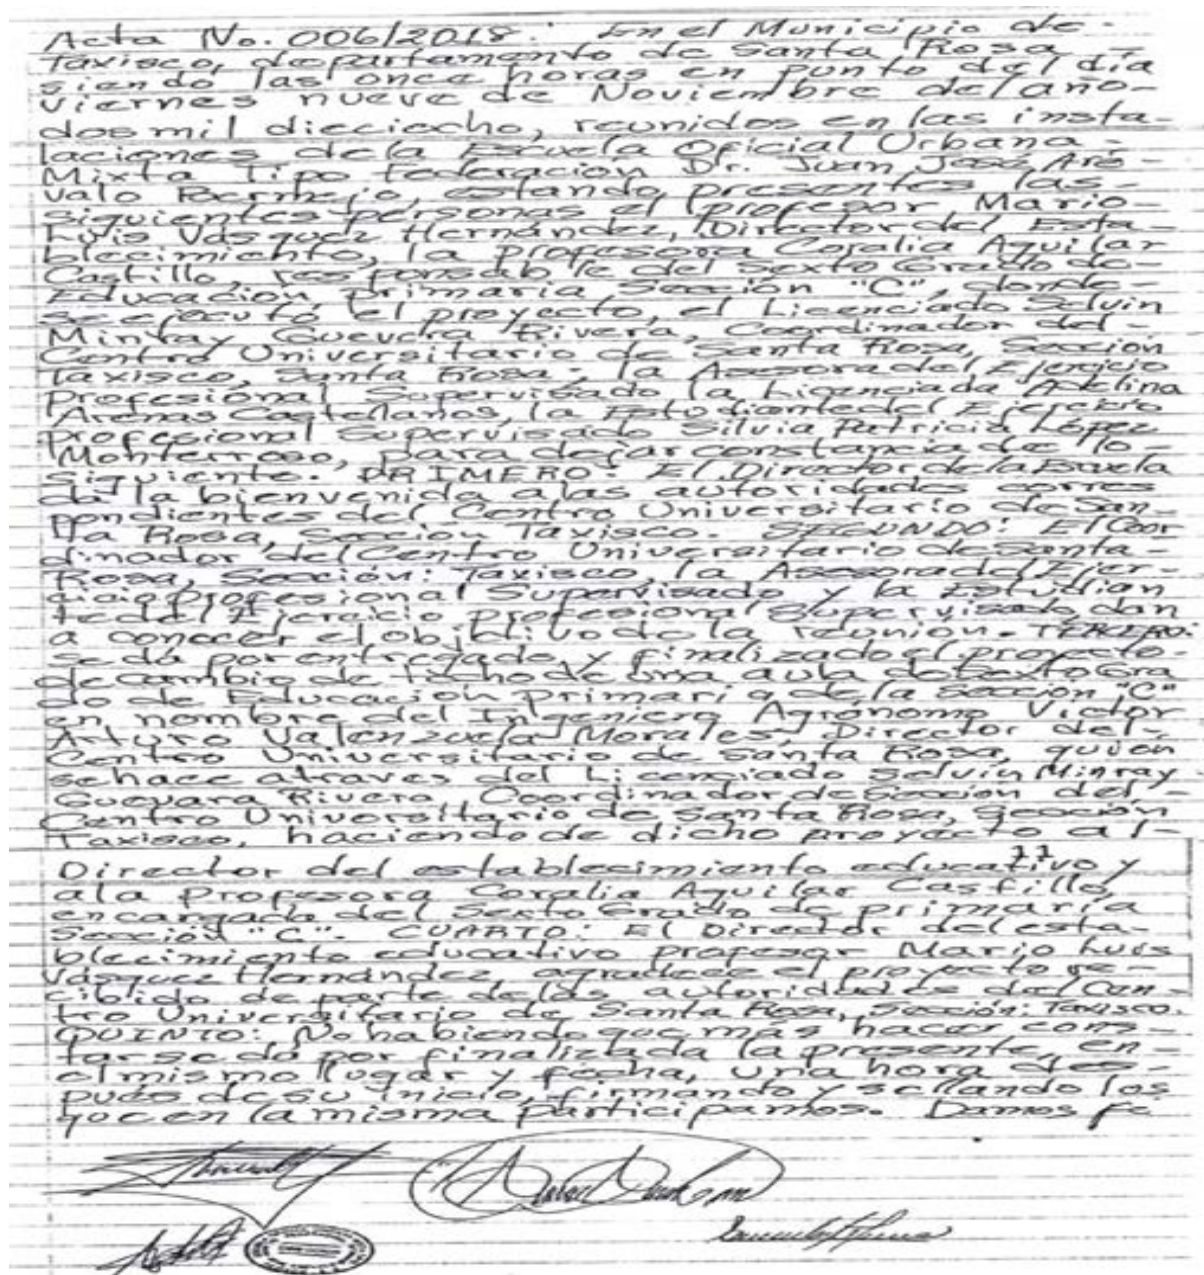 Acta No. 006/2018. En el Municipio de-
Taxisco, departamento de Santa Rosa -
siendo las once horas en punto del día
viernes nueve de Noviembre del año-
dos mil dieciocho, reunidos en las insta-
laciones de la Escuela Oficial Urbana-
Mixta Tipo Federación Dr. Juan José Aré-
valo Bermejo, estando presentes las-
siguientes personas el profesor Mario-
Luis Vásquez Hernández, Director del Esta-
blecimiento, la Profesora Coralia Aguilar
Castillo, responsable del Sexto Grado de-
Educación primaria Sección "C", donde-
se ejecutó el proyecto, el Licenciado Selvin
Minray Guevara Rivera, Coordinador del-
Centro Universitario de Santa Rosa, Sección
Taxisco, Santa Rosa; la Asesora del Ejercicio
Profesional Supervisado la Licenciada Adelina
Arenas Castellanos, la Estudiante del Ejercicio
Profesional Supervisado Silvia Patricia López
Monterroso, para dejar constancia de lo-
siguiente. PRIMERO: El Director de la Escuela
dá la bienvenida a las autoridades corres
pondientes del Centro Universitario de San-
ta Rosa, Sección Taxisco. SEGUNDO: El Coor
dinador del Centro Universitario de Santa-
Rosa, Sección: Taxisco, la Asesora del Ejer-
cicio Profesional Supervisado y la Estudian
te del Ejercicio Profesional Supervisado, dan
a conocer el objetivo de la reunión. TERCERO:
Se dá por entregado y finalizado el proyecto-
de cambio de techo de una aula de Sexto Gra
do de Educación primaria de la Sección "C"
en nombre del Ingeniero Agrónomo Victor
Arturo Valenzuela Morales, Director del-
Centro Universitario de Santa Rosa, quien
se hace atraves del Licenciado Selvin Minray
Guevara Rivera, Coordinador de Sección del-
Centro Universitario de Santa Rosa, Sección
Taxisco, haciendo de dicho proyecto al-
77
Director del establecimiento educativo y
a la Profesora Coralia Aguilar Castillo,
encargada del Sexto Grado de primaria
Sección "C". CUARTO: El Director del esta-
blecimiento educativo profesor Mario Luis
Vásquez Hernández, agradece el proyecto re-
cibido de parte de las autoridades del Cen-
tro Universitario de Santa Rosa, Sección: Taxisco.
QUINTO: No habiendo que más hacer cons-
tar se dá por finalizada la presente, en-
el mismo lugar y fecha, una hora des-
pués de su inicio, firmando y sellando los
que en la misma participamos. Damos fe